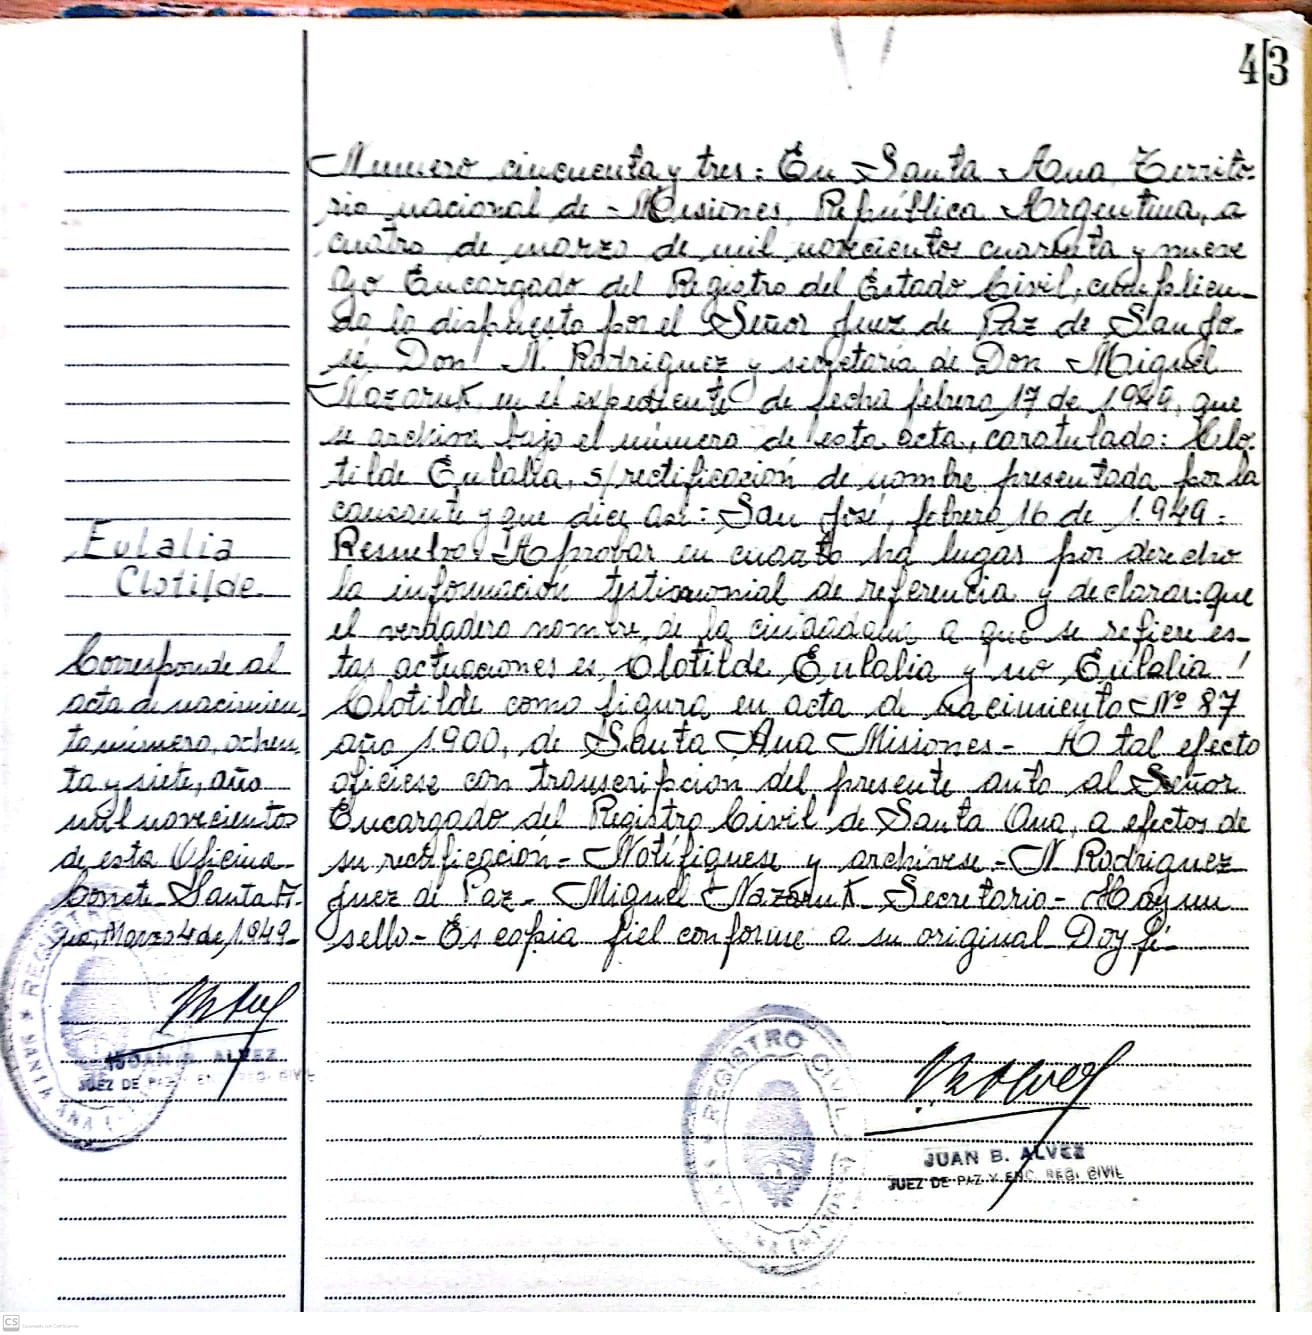 43
Numero cincuenta y tres: En Santa Ana Territo-
rio nacional de Misiones, República Argentina, a
cuatro de marzo de mil novecientos cuarenta y nueve
Yo Encargado del Registro del Estado Civil, cumplien-
do lo dispuesto por el Señor Juez de Paz de San Jo-
sé, Don N. Rodriguez y secretaria de Don Miguel
Nazaruk, en el expediente de fecha febrero 17 de 1.949, que
se archiva bajo el número de esta acta, caratulado: Clo-
tilde Eulalia, s/rectificación de nombre presentada por la
causante y que dice asi: San José, febrero 16 de 1.949:
Resuelvo: Aprobar en cuanto há lugar por derecho
la información testimonial de referencia y declarar: que
el verdadero nombre de la ciudadana a que se refiere es-
tas actuaciones es, Clotilde Eulalia y no Eulalia
Clotilde como figura en acta de nacimiento Nº 87
año 1.900, de Santa Ana Misiones - A tal efecto
oficiese con transcripción del presente auto al Señor
Encargado del Registro Civil de Santa Ana, a efectos de
su rectificación - Notifiquese y archivese - N Rodriguez
Juez de Paz - Miguel Nazaruk - Secretario - Hay un
sello - Es copia fiel conforme a su original Doy fé-
Eulalia
Clotilde
Corresponde al
acta de nacimien
to número, ochen
ta y siete, año
mil novecientos
de esta Oficina
Conste - Santa A-
na, Marzo 4 de 1.949-
REGISTRO
SANTA ANA
JUAN B. ALVEZ
JUEZ DE PAZ Y ENC. REG. CIVIL
REGISTRO CIVIL
JUAN B. ALVEZ
JUEZ DE PAZ Y ENC. REG. CIVIL
CS